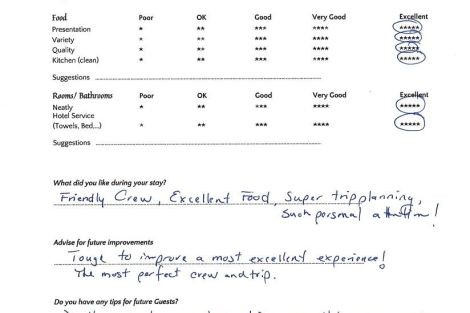 Food Poor OK Good Very Good Excellent
Presentation * ** *** **** *****
Variety * ** *** **** *****
Quality * ** *** **** *****
Kitchen (clean) * ** *** **** *****
Suggestions
Rooms/ Bathrooms Poor OK Good Very Good Excellent
Neatly * ** *** **** *****
Hotel Service
(Towels, Bed,...) * ** *** **** *****
Suggestions
What did you like during your stay?
Friendly Crew, Excellent Food, Super trip planning,
Such personal attention!
Advise for future improvements
Tough to improve a most excellent experience!
The most perfect crew and trip.
Do you have any tips for future Guests?